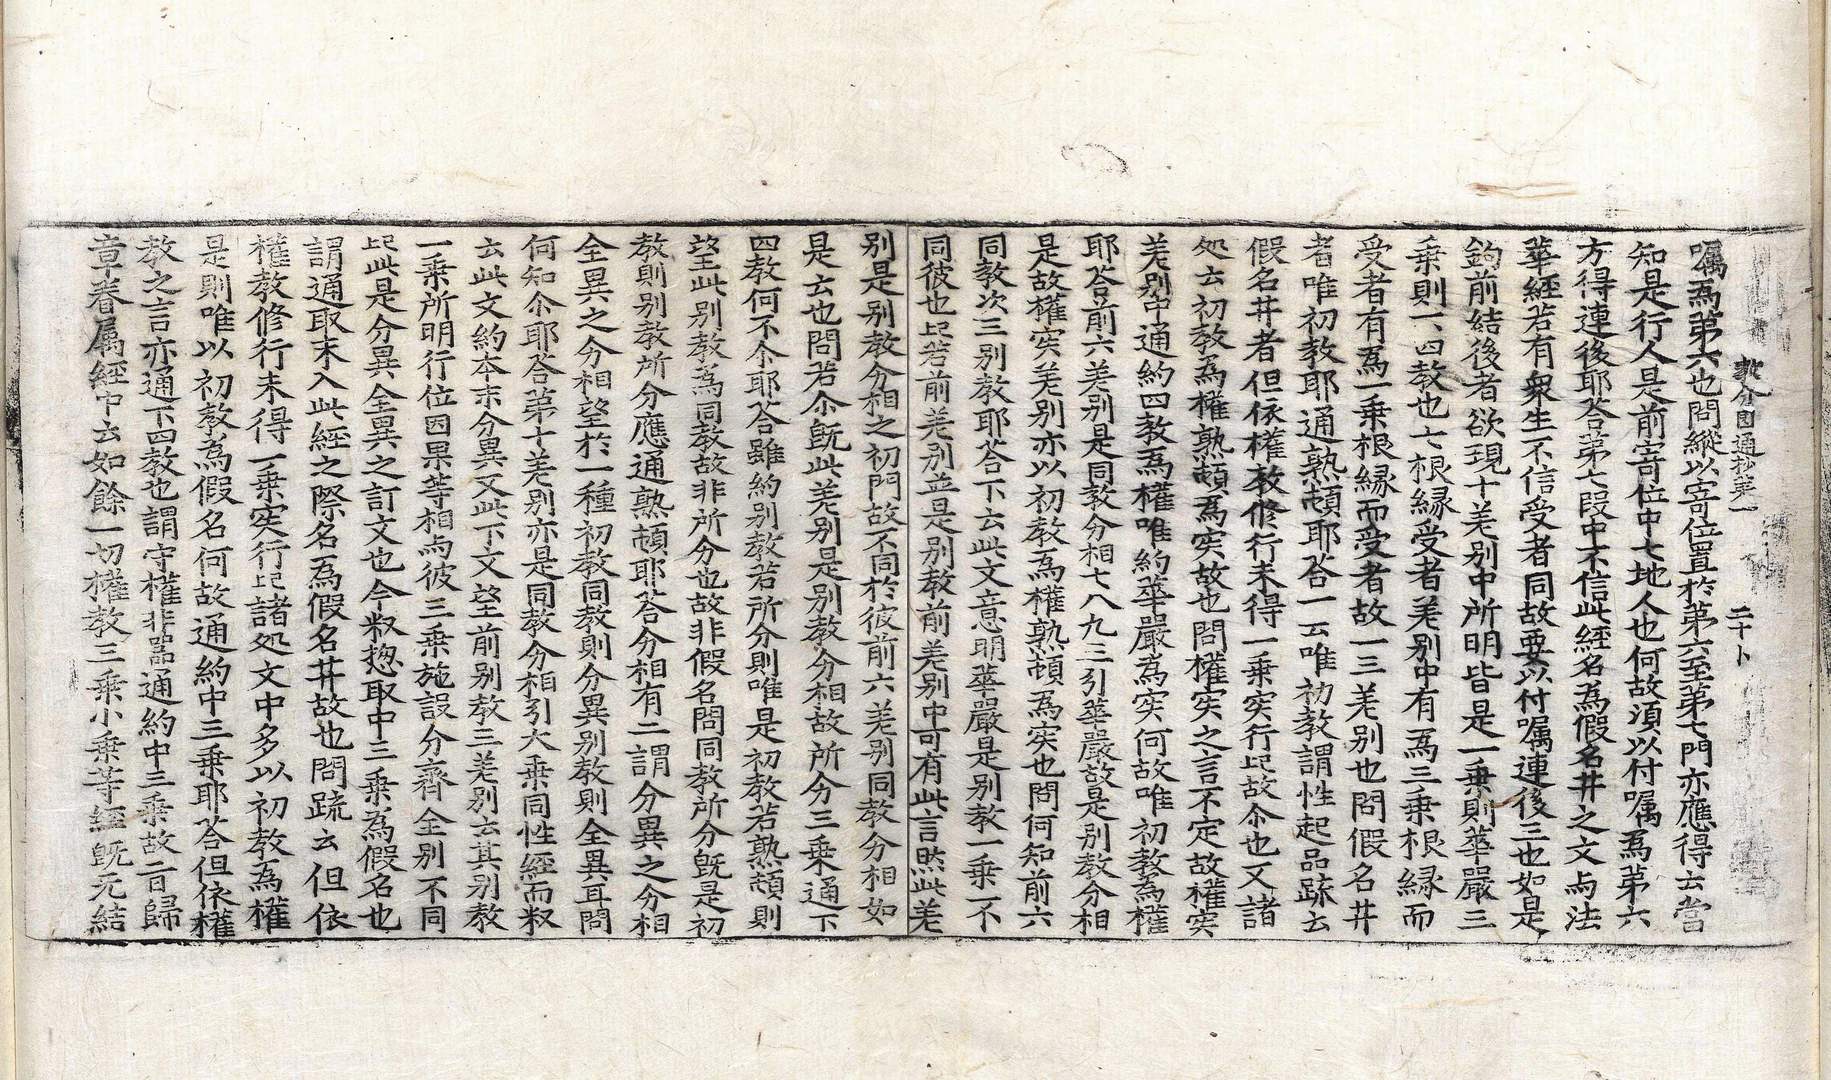 教分圓通抄第一 二十卜
嘱為第六也問縱以寄位置於第六至第七門亦應得去當
知是行人是前寄位中七地人也何故須以付嘱為第六
方得連後耶荅第七段中不信此經名為假名井之文与法
華經若有衆生不信受者同故要以付嘱連後三也如是
鉤前結後者欲現十差别中所明皆是一乗則華嚴三
乗則一四教也七根緣受者差别中有為三乗根緣而
受者有為一乗根緣而受者故一三差别也問假名井
者唯初教耶通熟頓耶荅一云唯初教謂性起品䟽云
假名井者但依權教修行未得一乗实行𠯁故尒也又諸
処云初教為權熟頓為实故也問權实之言不定故權实
差别中通約四教為權唯約華嚴為实何故唯初教為權
耶荅前六差别是同教分相七八九三引華嚴故是别教分相
是故權实差别亦以初教為權熟頓為实也問何知前六
同教次三别教耶荅下云此文意明華嚴是别教一乗不
同彼也𠯁若前差别並是别教前差别中可有此言㷊此差
别是别教分相之初門故不同於彼前六差别同教分相如
是云也問若尒旣此差别是别教分相故所分三乗通下
四教何不尒耶荅雖約别教若所分則唯是初教若熟頓則
望此别教為同教故非所分也故非假名問同教所分旣是初
教則别教所分應通熟頓耶荅分相有二謂分異之分相
全異之分相望於一種初教同教則分異别教則全異耳問
何知尒耶荅第十差别亦是同教分相引大乗同性經而叙
云此文約本末分異又此下文望前别教三差别云其别教
一乗所明行位因果等相与彼三乗施設分齊全别不同
𠯁此是分異全異之訂文也今叙揔取中三乗為假名也
謂通取末入此經之際名為假名井故也問䟽云但依
權教修行未得一乗实行𠯁諸処文中多以初教為權
是則唯以初教為假名何故通約中三乗耶荅但依權
教之言亦通下四教也謂守權非噐通約中三乗故一百歸
章卷属經中云如餘一切權教三乗小乗等經旣无結